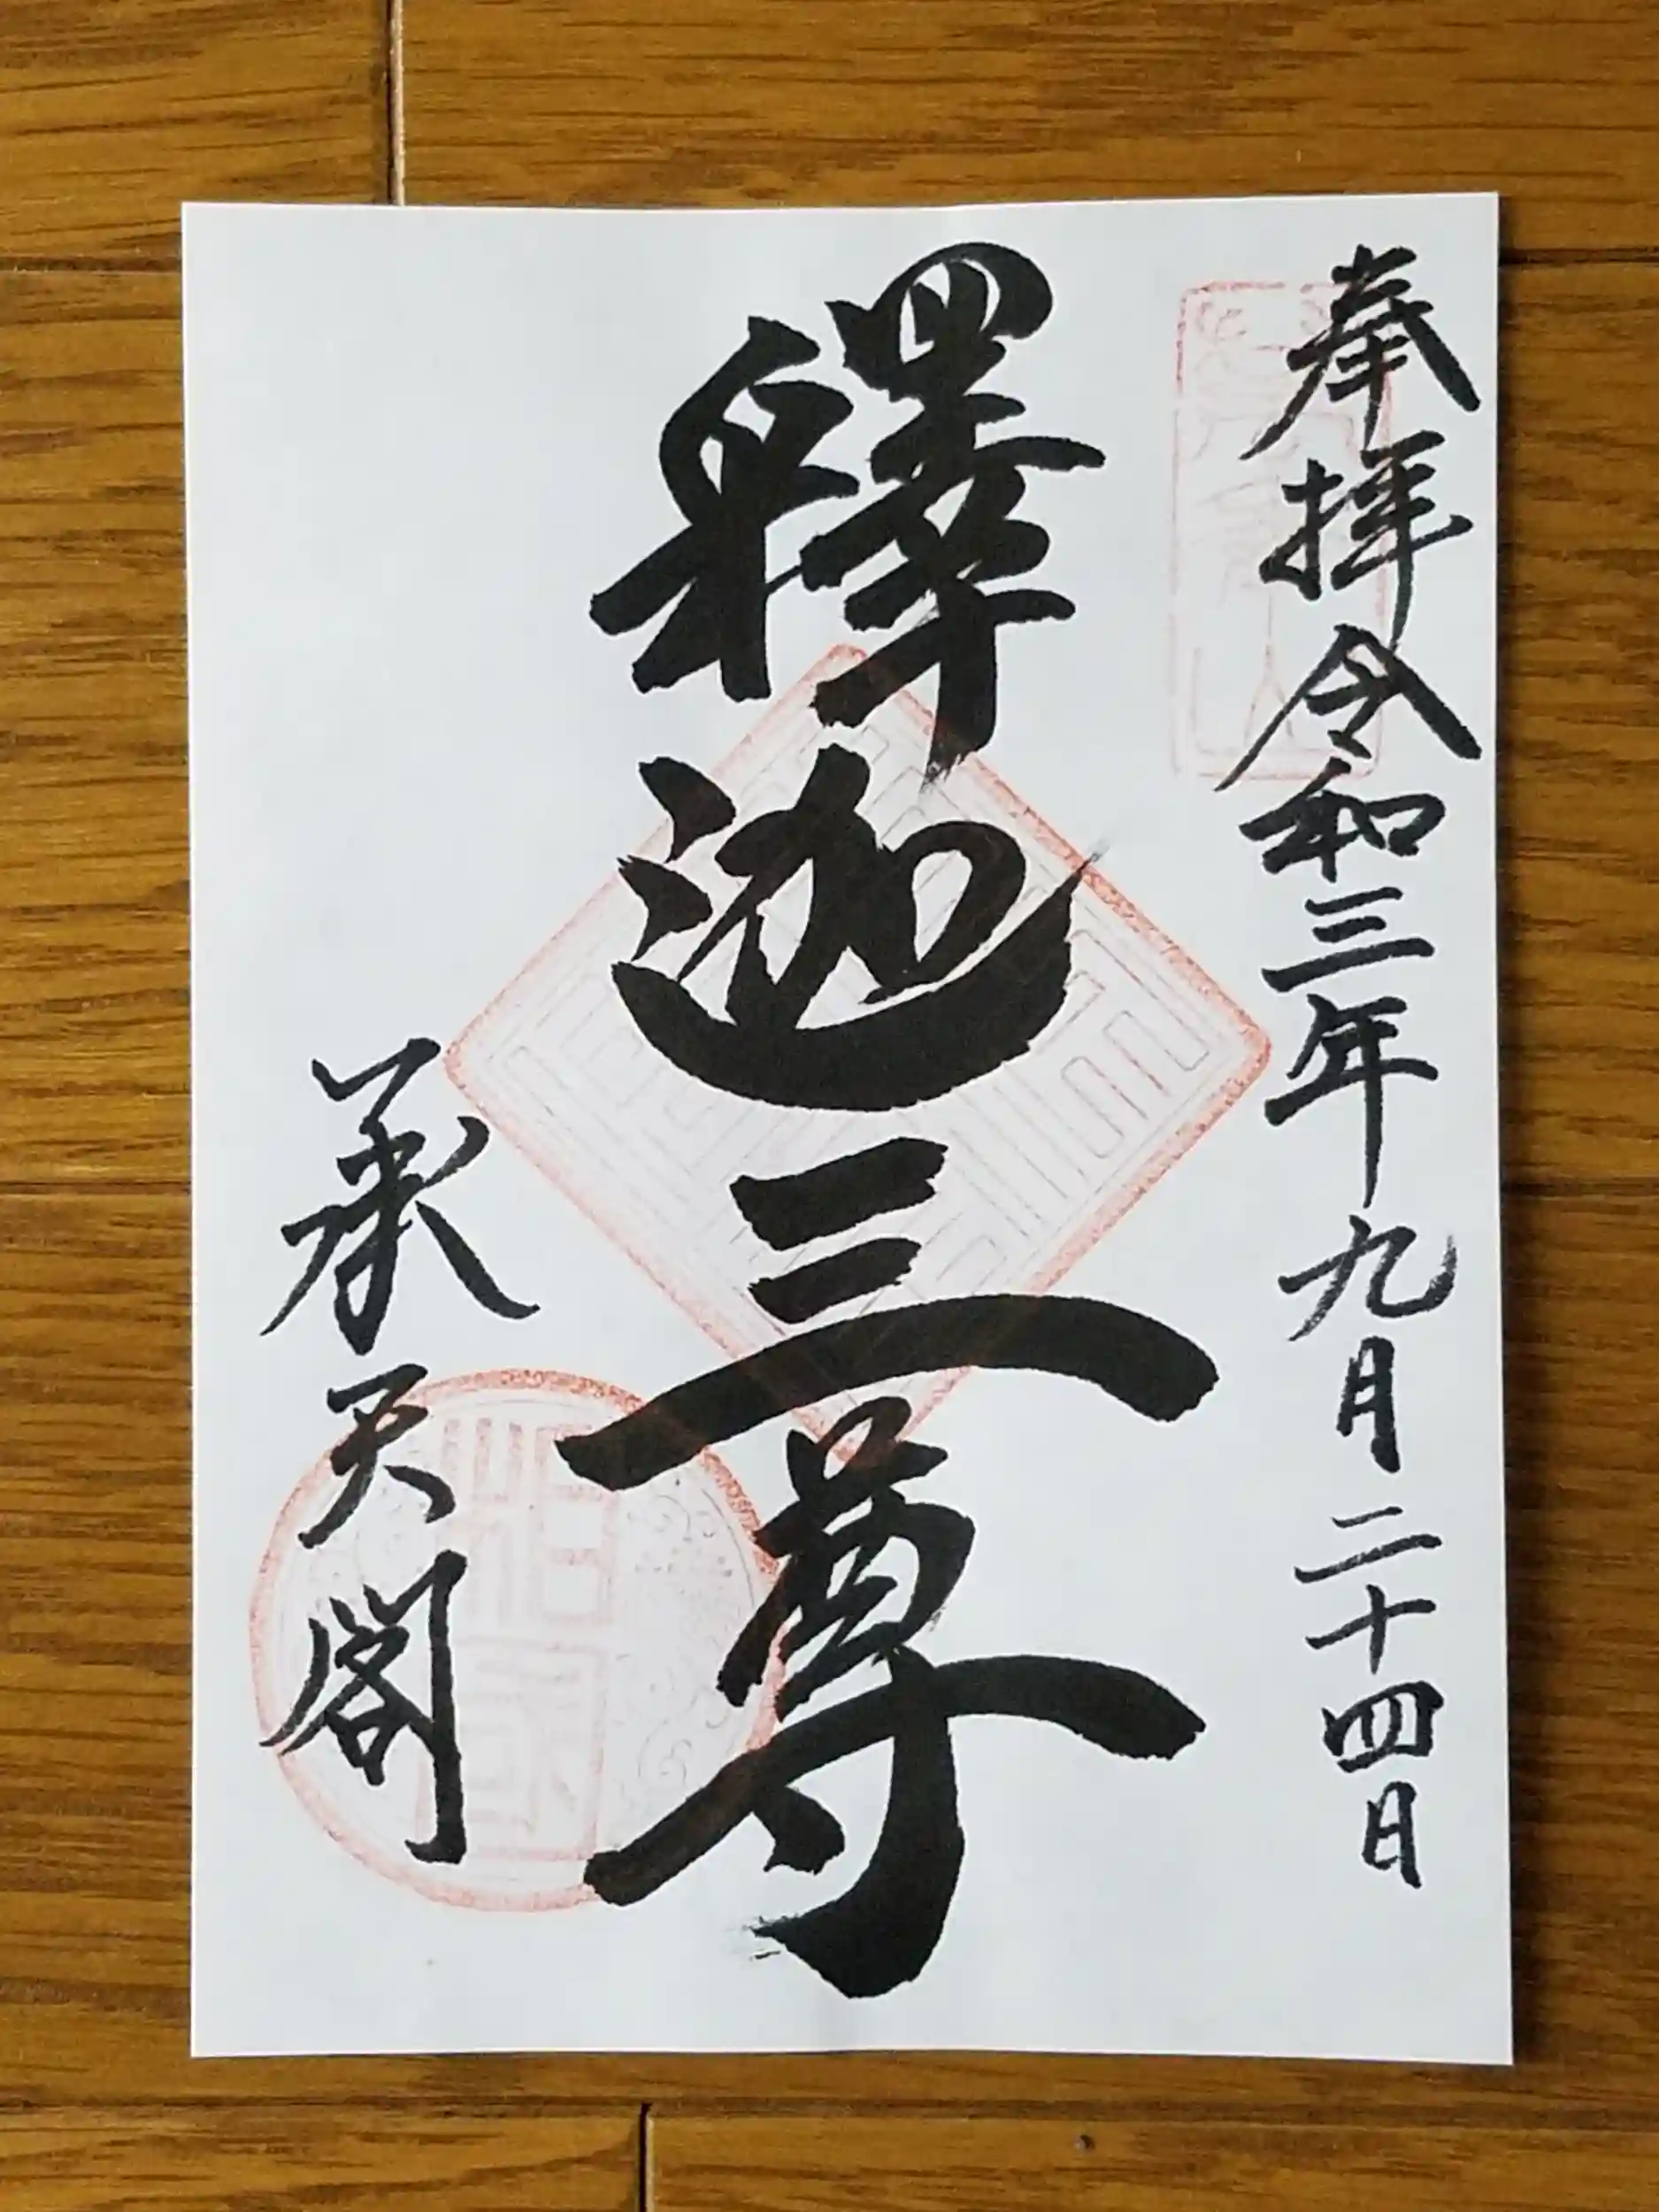 奉拝令和三年九月二十四日
釋迦三尊
承天閣
相国